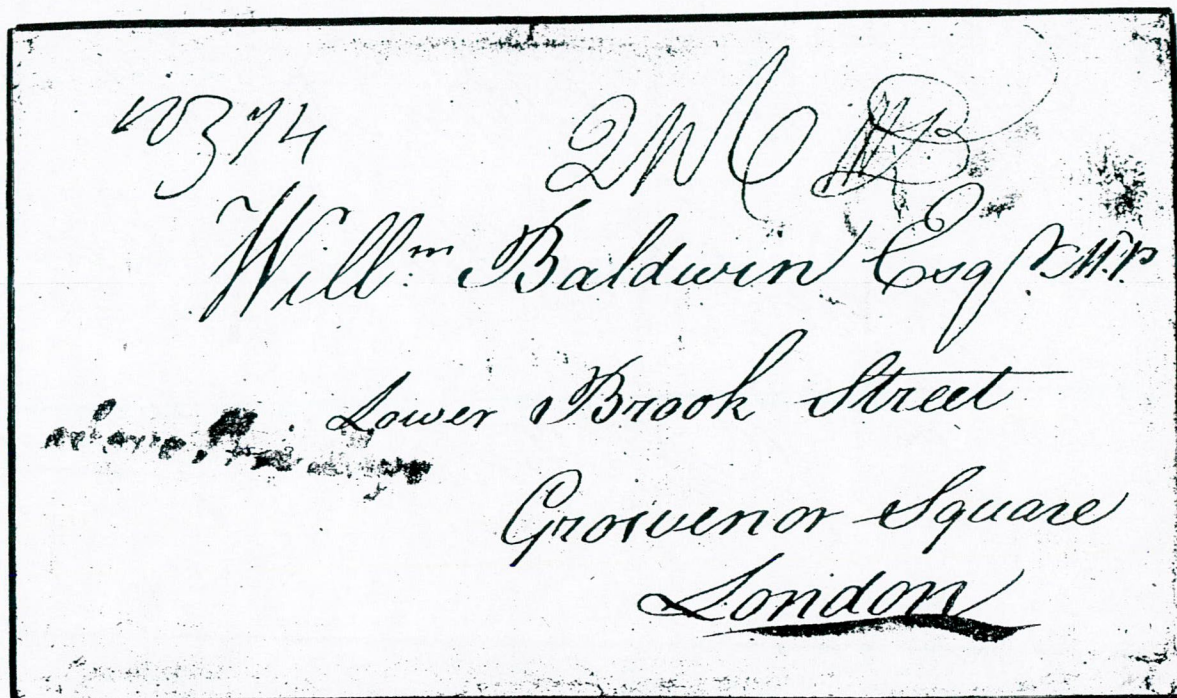 Will.m Baldwin Esqr. M.P.
Lower Brook Street
Grosvenor Square
London